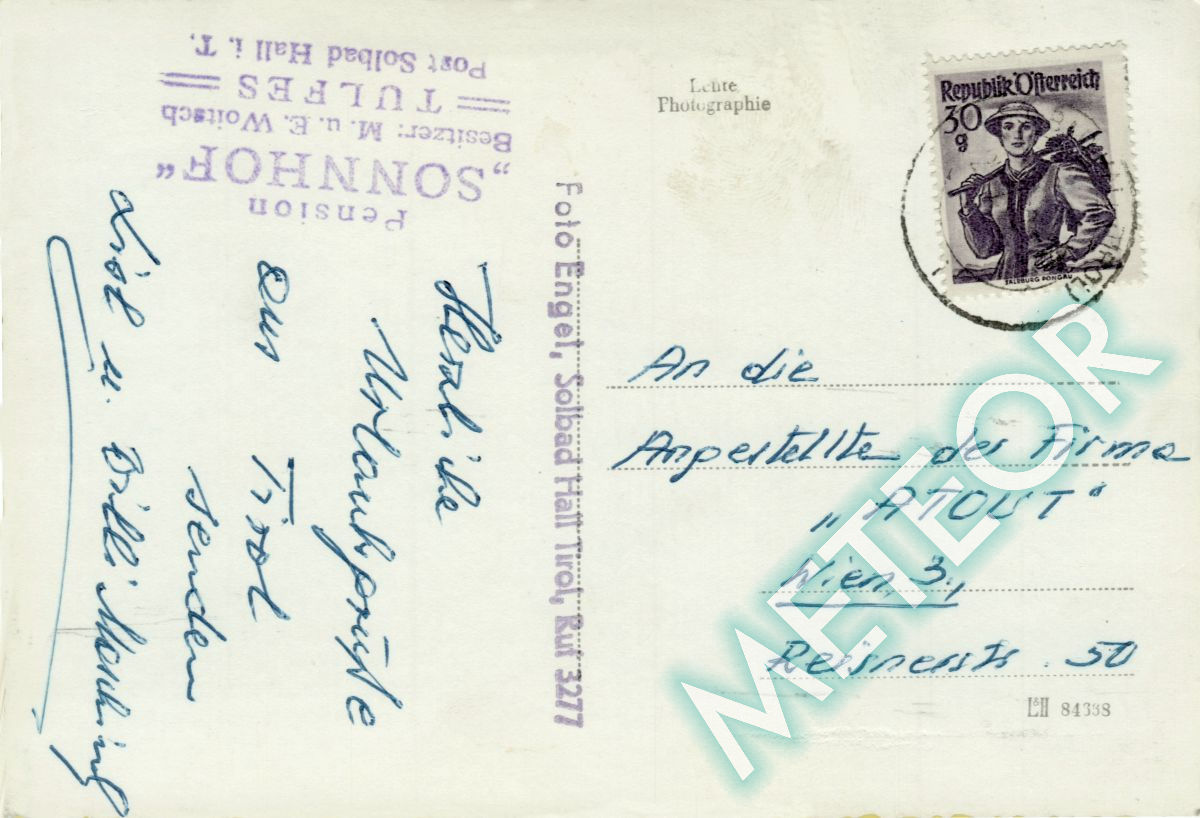 Pension
„SONNHOF“
Besitzer: M. u. E. Woitsch
TULFES
Post Solbad Hall i. T.
Herzliche
Urlaubsgrüße
aus Tirol
senden
Foto Engel, Solbad Hall Tirol, Ruf 3277
Echte
Photographie
Republik Österreich
30
g
SALZBURG PONGAU
An die
Angestellten der Firma
„ATOUT“
Wien 3.,
Reisnerstr. 50
L&H 84338
METEOR